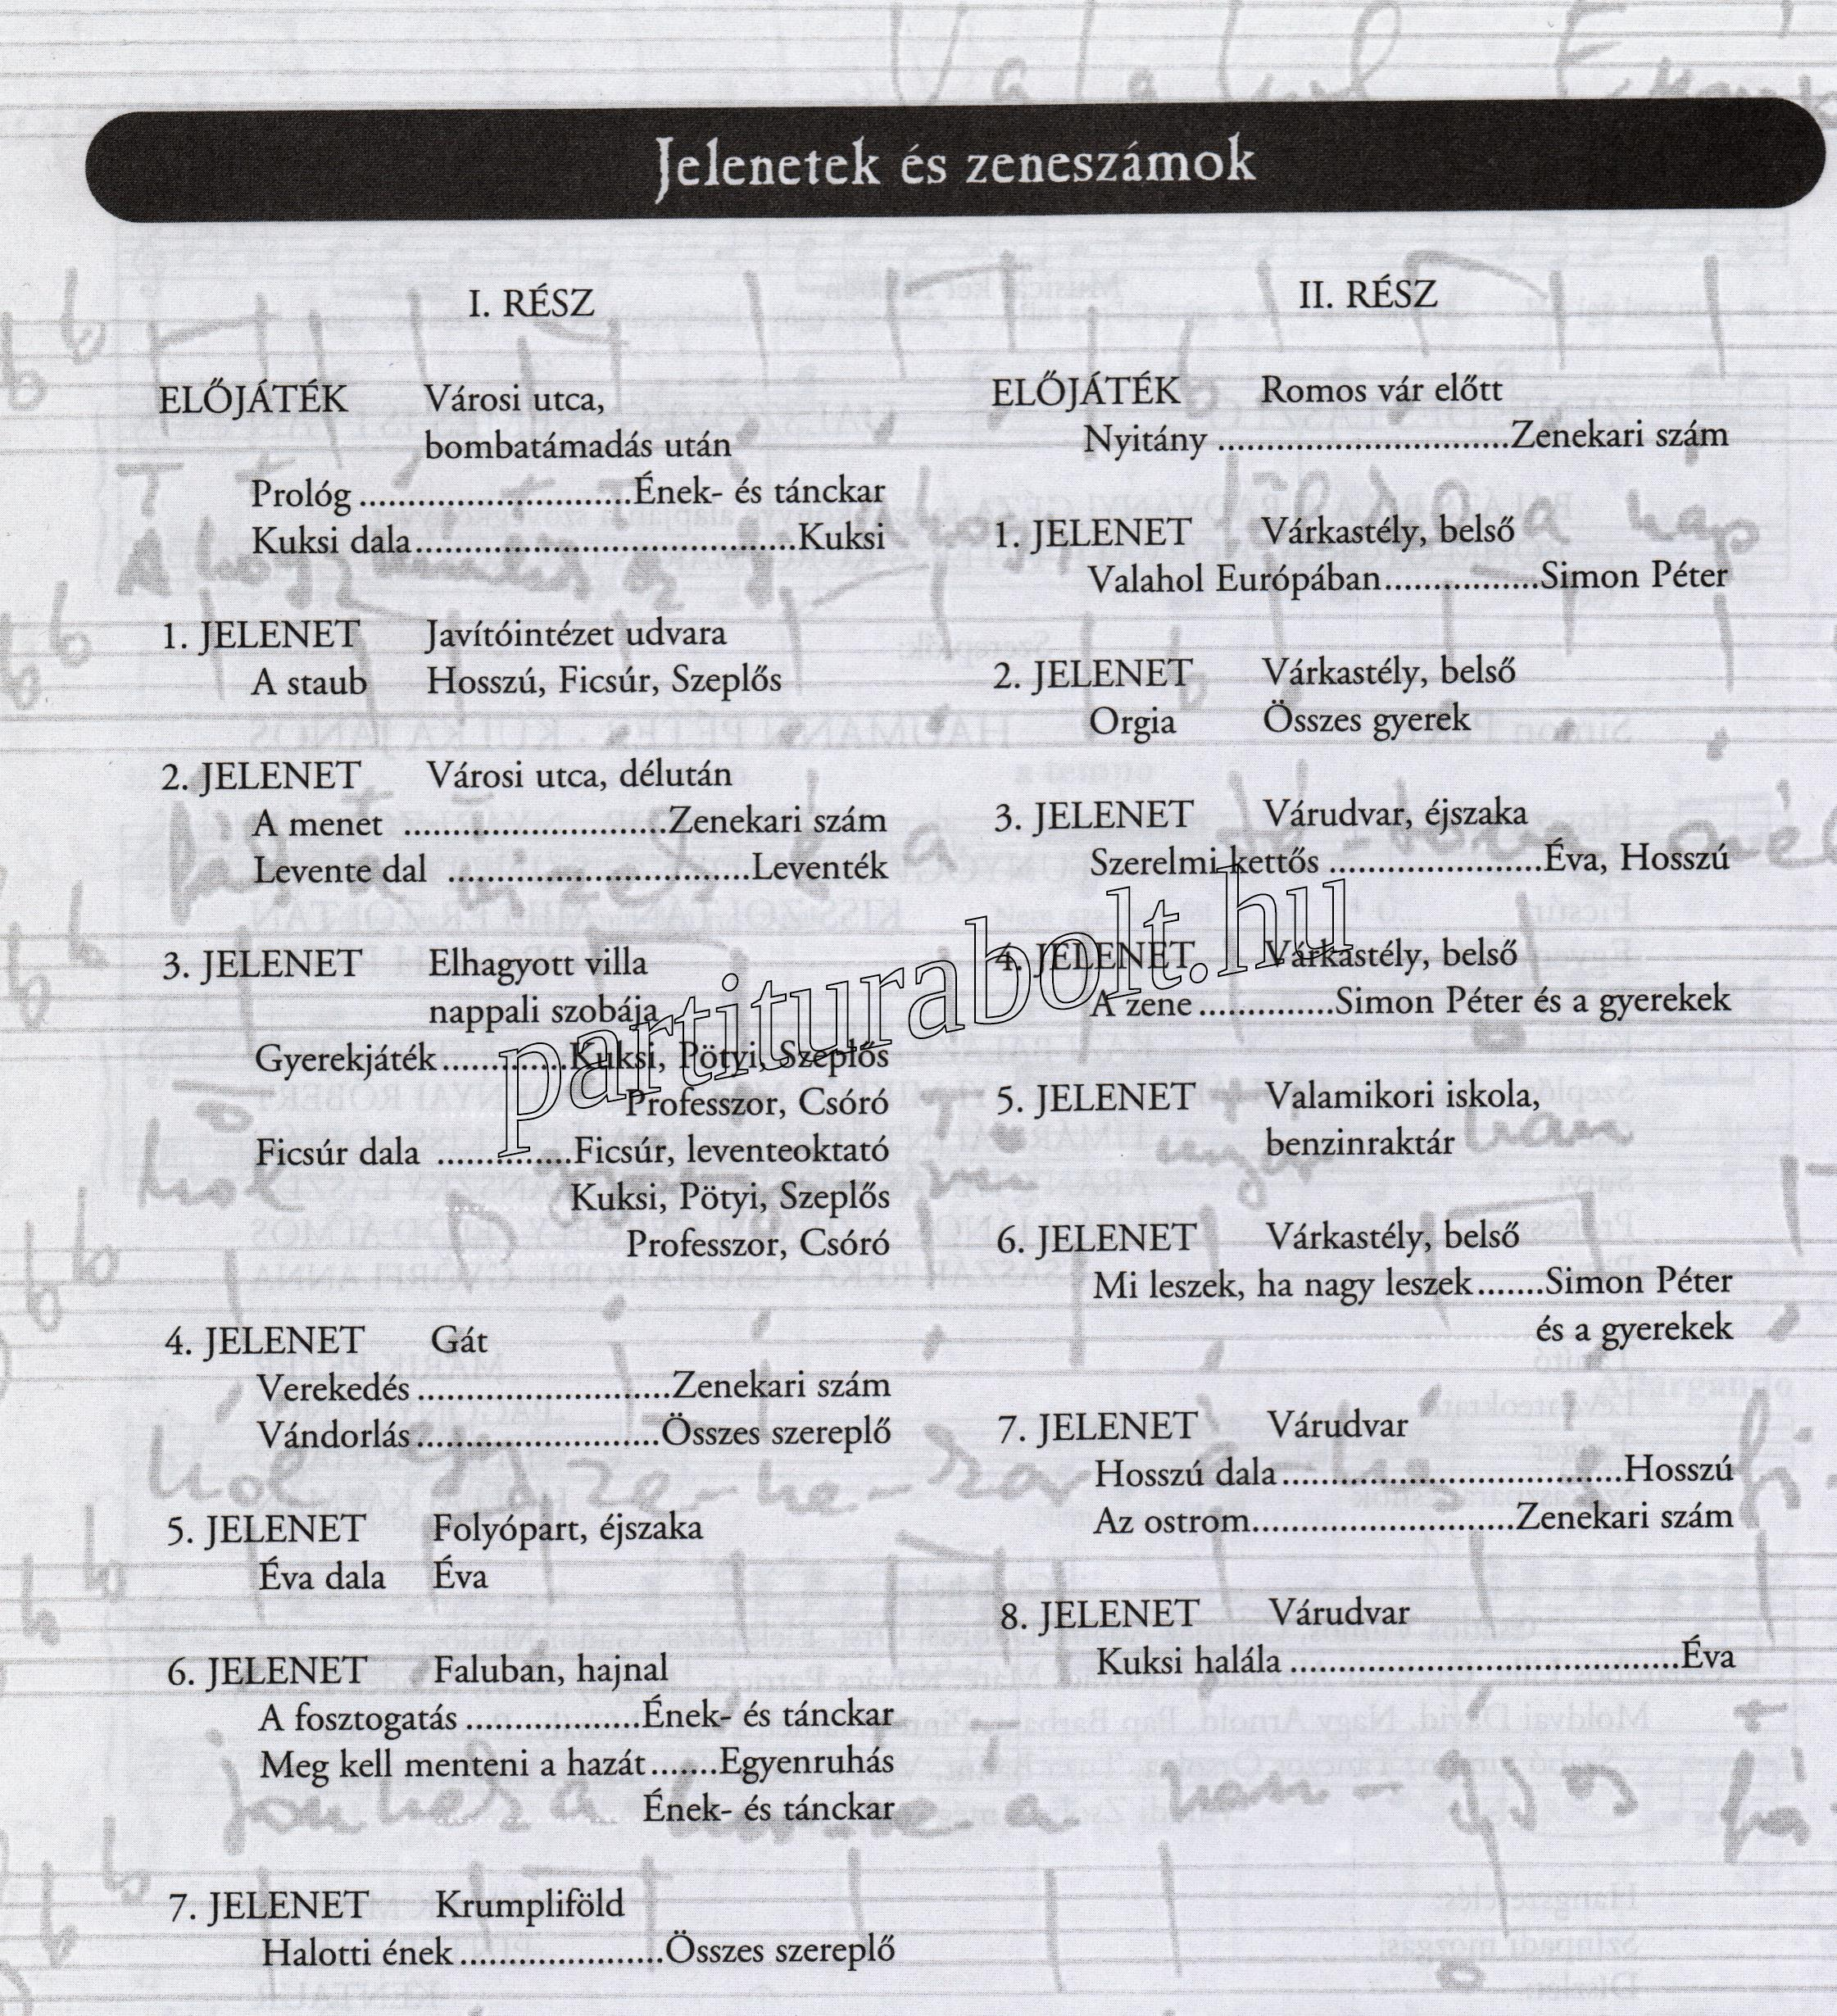 Jelenetek és zeneszámok
I. RÉSZ
ELŐJÁTÉK Városi utca,
bombatámadás után
Prológ...........................Ének- és tánckar
Kuksi dala......................................Kuksi
1. JELENET Javítóintézet udvara
A staub Hosszú, Ficsúr, Szeplős
2. JELENET Városi utca, délután
A menet ..........................Zenekari szám
Levente dal ..............................Leventék
3. JELENET Elhagyott villa
nappali szobája
Gyerekjáték.............Kuksi, Pötyi, Szeplős
Professzor, Csóró
Ficsúr dala .............Ficsúr, leventeoktató
Kuksi, Pötyi, Szeplős
Professzor, Csóró
4. JELENET Gát
Verekedés.........................Zenekari szám
Vándorlás........................Összes szereplő
5. JELENET Folyópart, éjszaka
Éva dala Éva
6. JELENET Faluban, hajnal
A fosztogatás.................Ének- és tánckar
Meg kell menteni a hazát.......Egyenruhás
Ének- és tánckar
7. JELENET Krumpliföld
Halotti ének....................Összes szereplő
II. RÉSZ
ELŐJÁTÉK Romos vár előtt
Nyitány .............................Zenekari szám
1. JELENET Várkastély, belső
Valahol Európában...............Simon Péter
2. JELENET Várkastély, belső
Orgia Összes gyerek
3. JELENET Várudvar, éjszaka
Szerelmi kettős .....................Éva, Hosszú
4. JELENET Várkastély, belső
A zene..............Simon Péter és a gyerekek
5. JELENET Valamikori iskola,
benzinraktár
6. JELENET Várkastély, belső
Mi leszek, ha nagy leszek.......Simon Péter
és a gyerekek
7. JELENET Várudvar
Hosszú dala..................................Hosszú
Az ostrom..........................Zenekari szám
8. JELENET Várudvar
Kuksi halála.......................................Éva
partiturabolt.hu